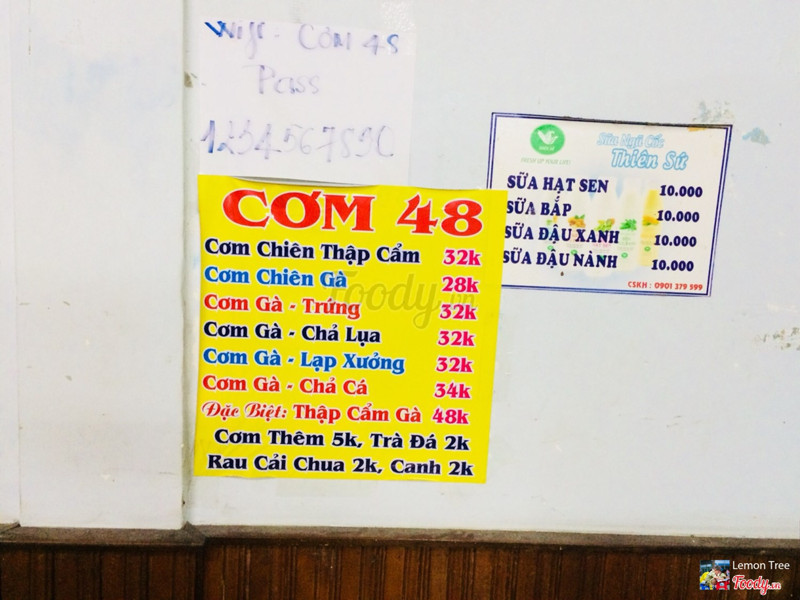 Wifi - Cơm 48
Pass
1234567890
CƠM 48
Cơm Chiên Thập Cẩm 32k
Cơm Chiên Gà 28k
Cơm Gà - Trứng 32k
Cơm Gà - Chả Lụa 32k
Cơm Gà - Lạp Xưởng 32k
Cơm Gà - Chả Cá 34k
Đặc Biệt: Thập Cẩm Gà 48k
Cơm Thêm 5k, Trà Đá 2k
Rau Cải Chua 2k, Canh 2k
FRESH UP YOUR LIFE!
Sữa Ngũ Cốc
Thiên Sứ
SỮA HẠT SEN 10.000
SỮA BẮP 10.000
SỮA ĐẬU XANH 10.000
SỮA ĐẬU NÀNH 10.000
CSKH : 0901 379 599
Foody.vn
Lemon Tree
Foody.vn